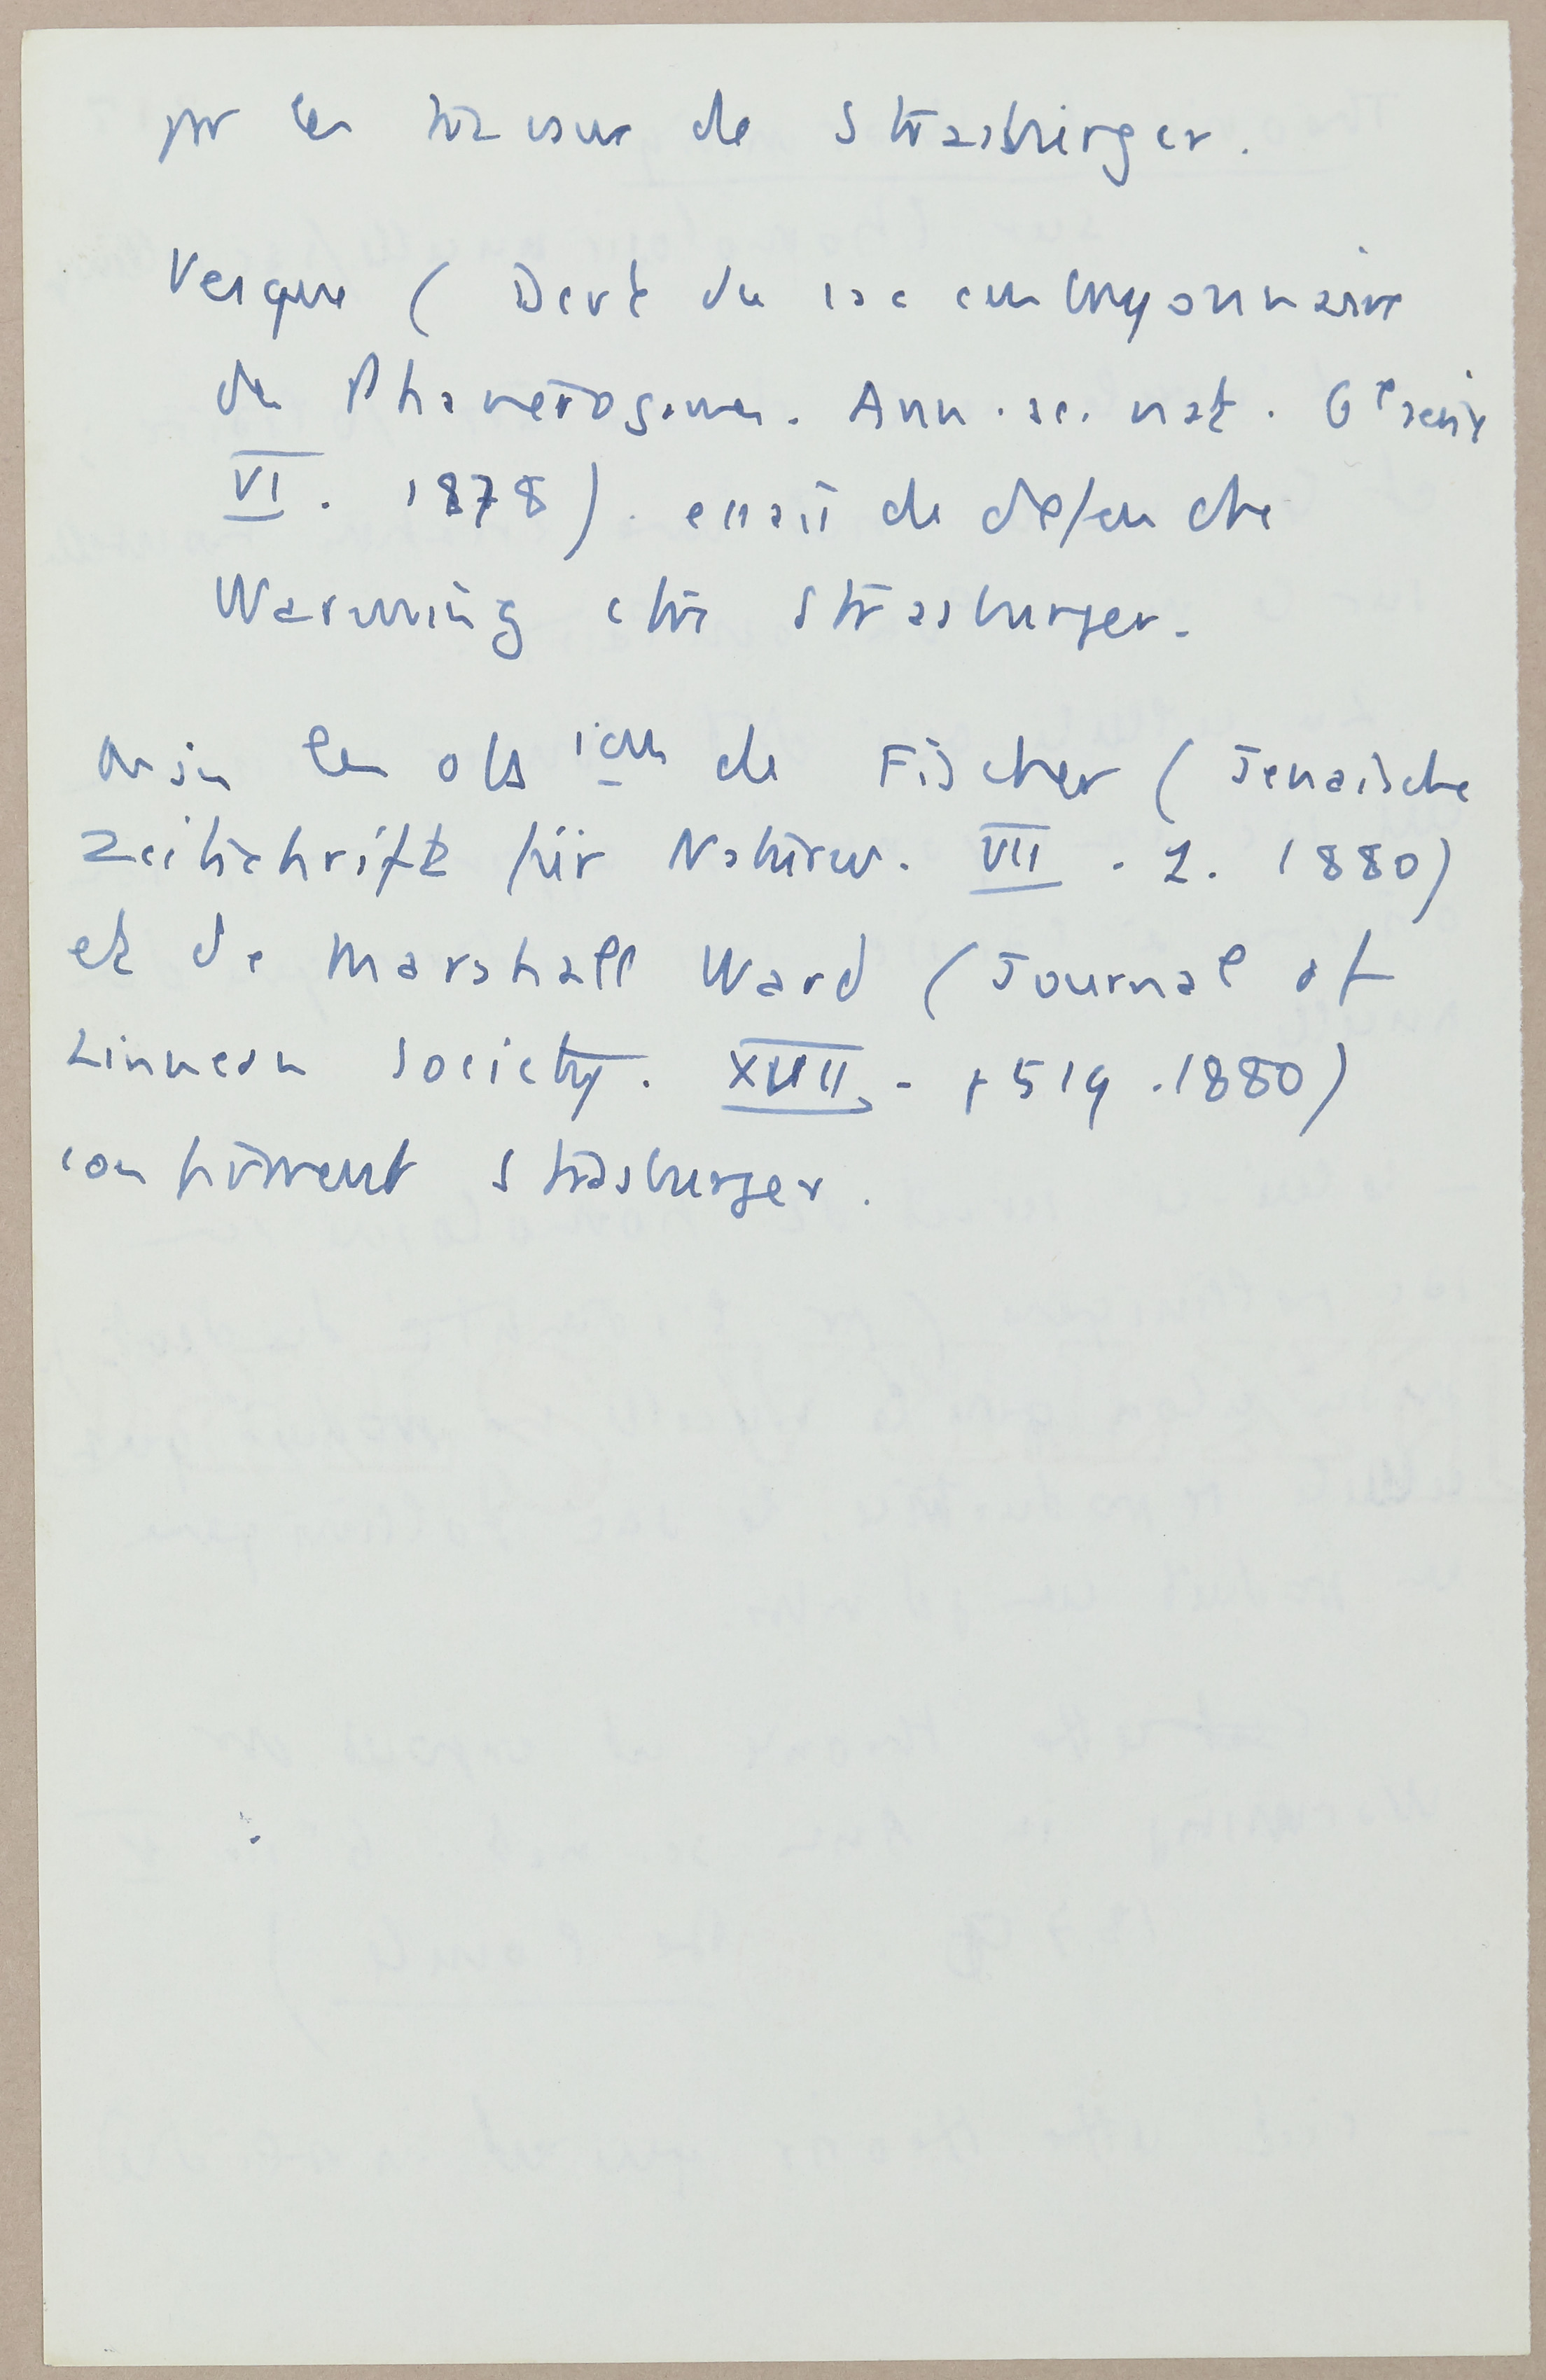 par les travaux de Strasburger.
Vesque (Devt du sac embryonnaire
des Phanérogames. Ann. sc. nat. 6e série
VI. 1878). essaie de défendre
Warming ctre Strasburger.
Mais les obsions de Fischer (Jenaische
Zeitschrift für Naturw. VII. 1880)
et de Marshall Ward (Journal of
Linnean Society. XVII - p 519. 1880)
confirment Strasburger.